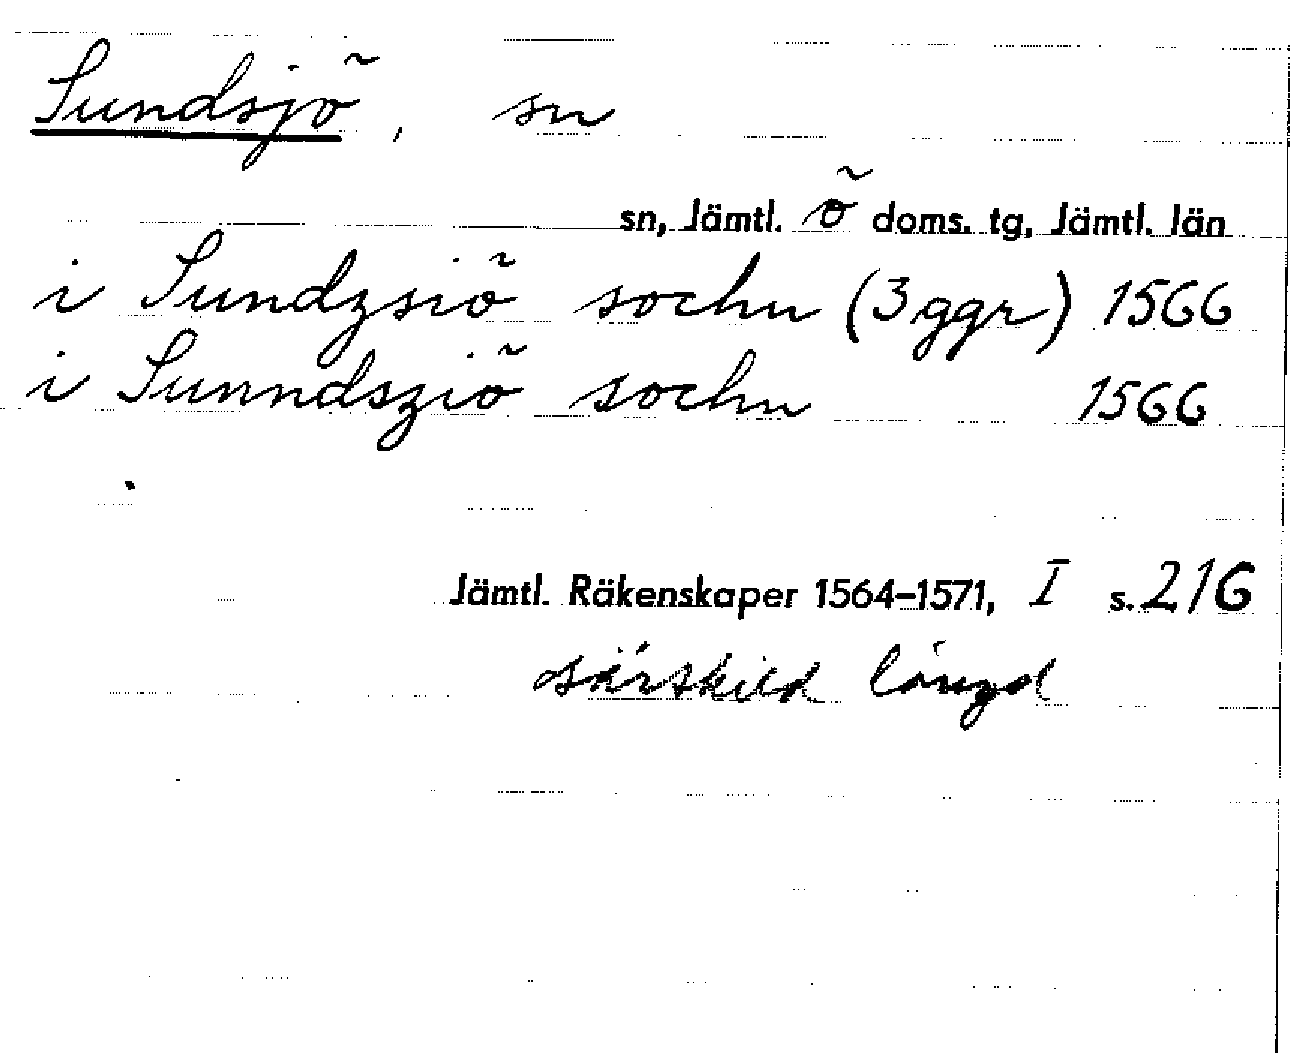 Sundsjö, sn
sn, Jämtl. ö doms. tg, Jämtl. län
i Sundzsiö sochn (3 ggr) 1566
i Sunndsziö sochn 1566
Jämtl. Räkenskaper 1564–1571, I s. 216
särskild längd